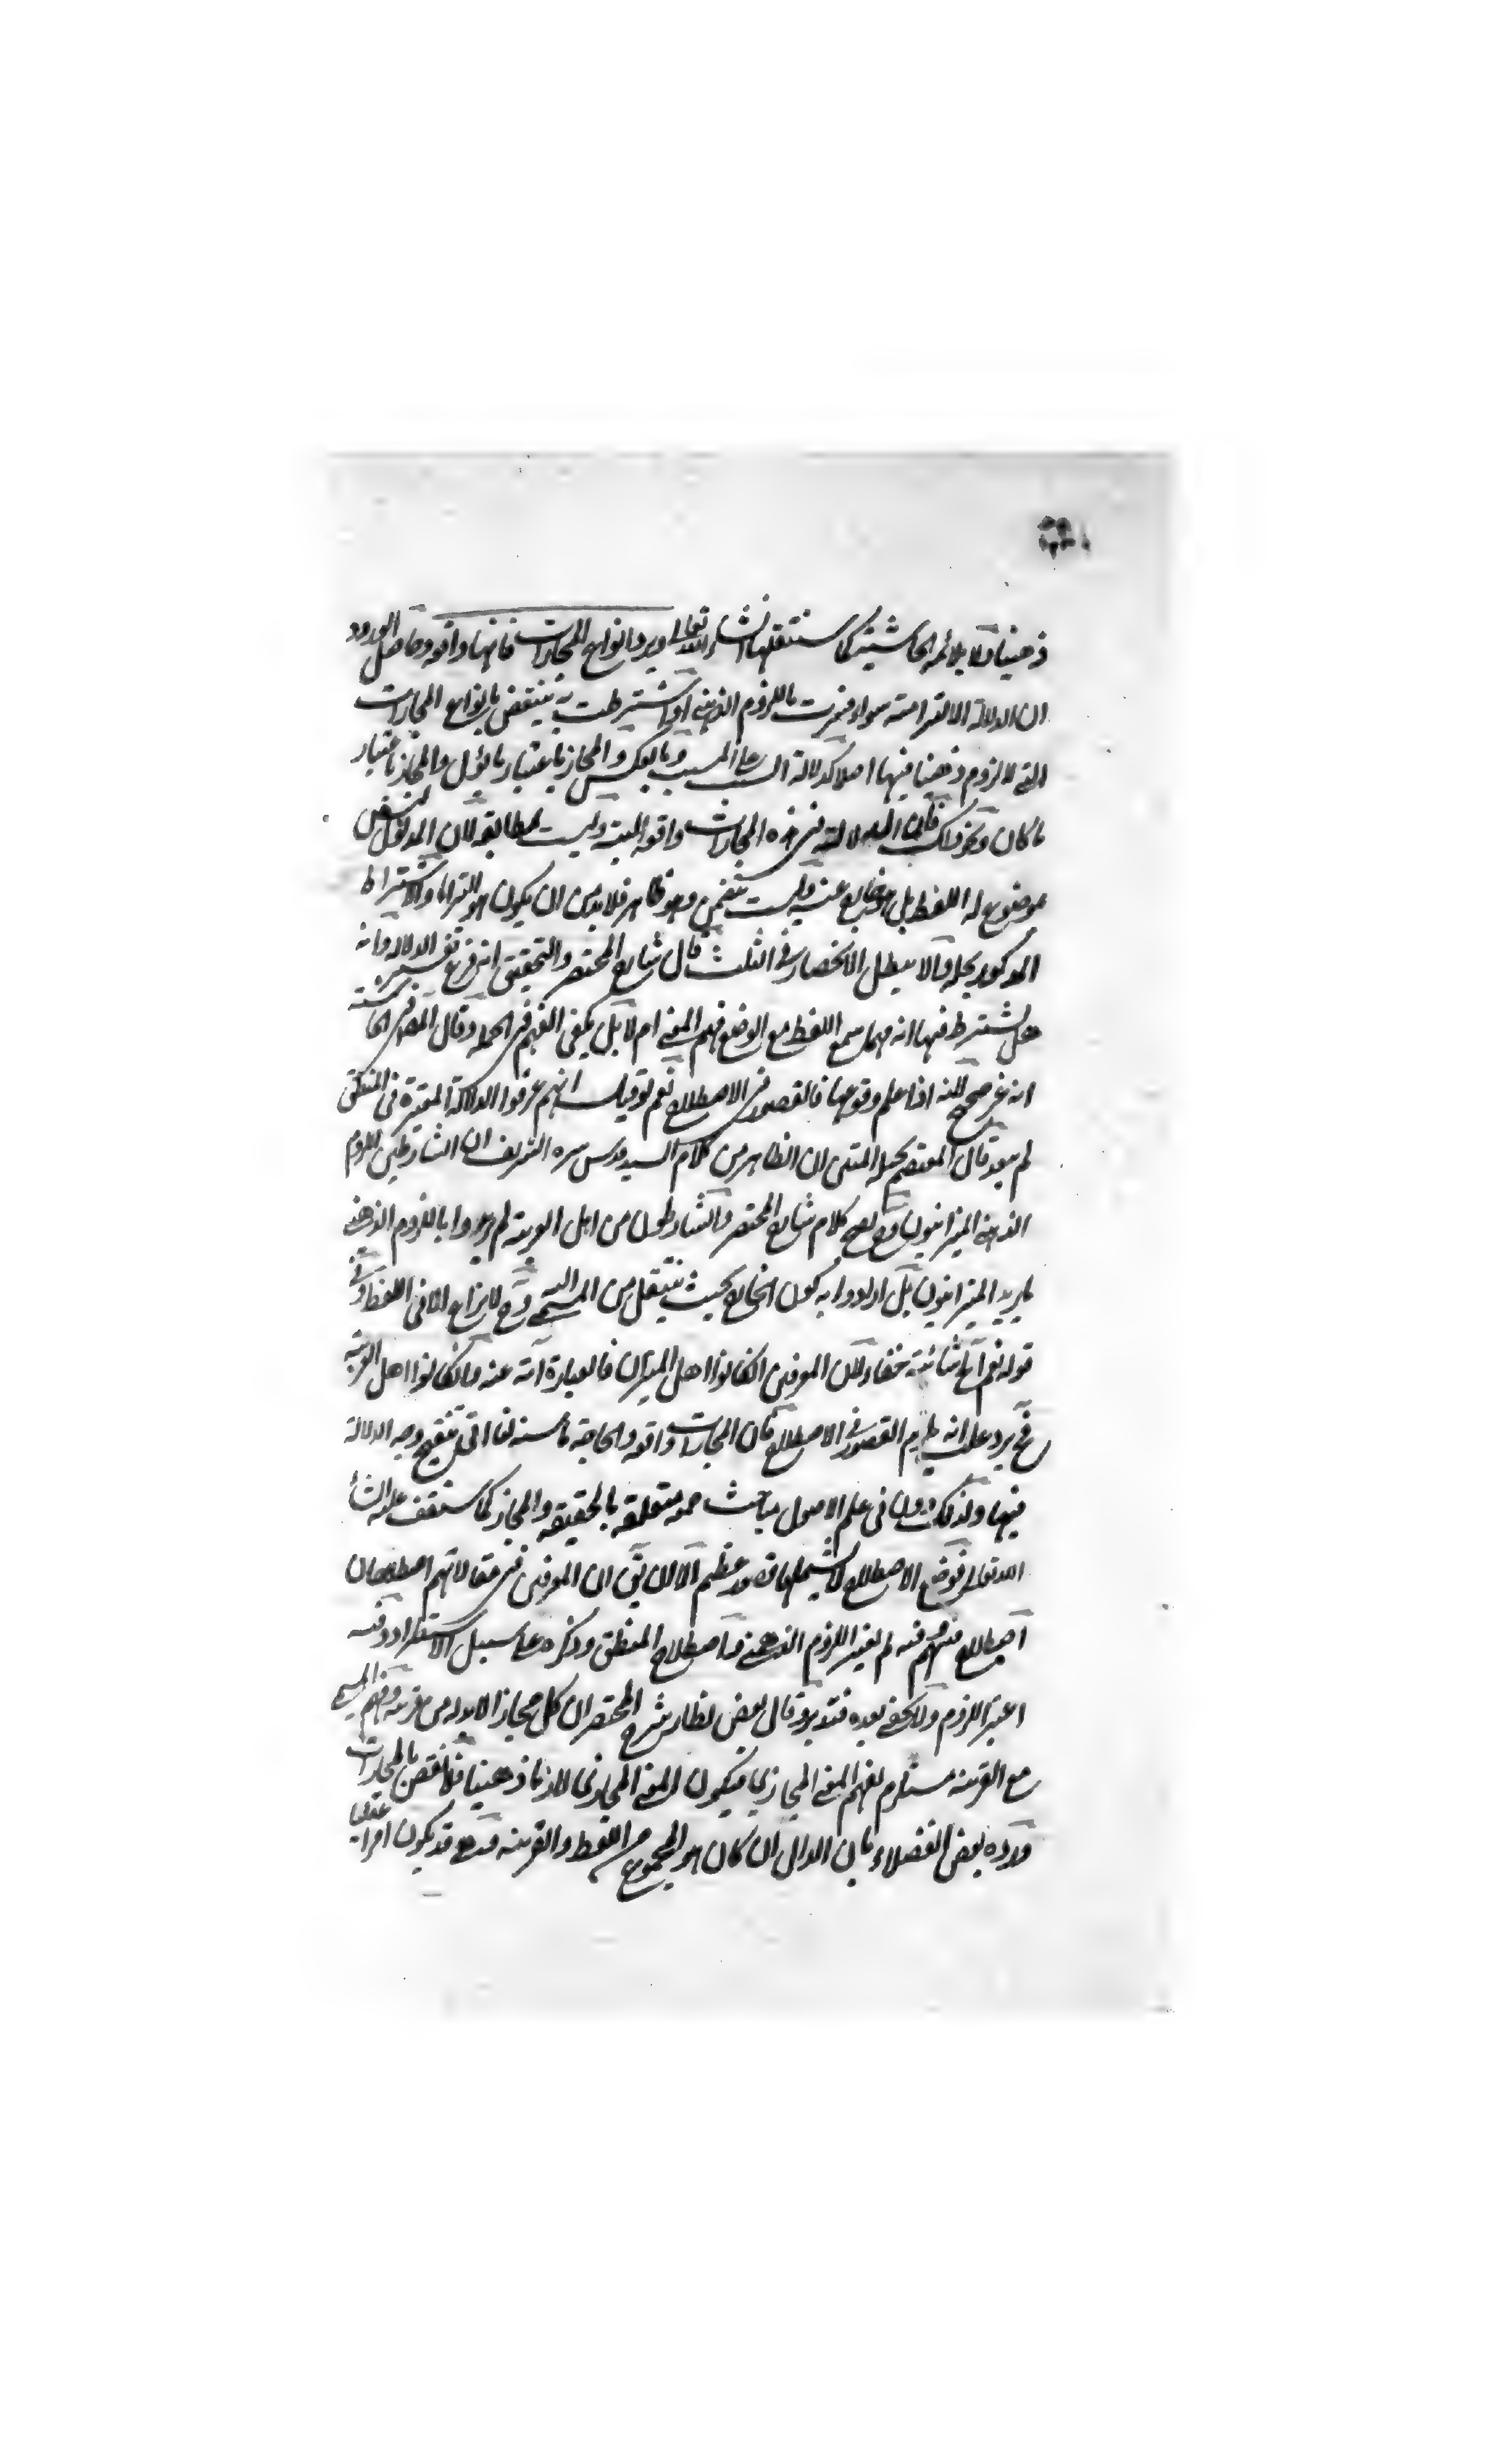 ذهنيا ولا يلائمه الحاشية كما سننقلها انشاء الله تعالى ويرد انواع المجازات فانها واقعة وحاصل الورود
ان الدلالة الالتزامية سواء فسرت باللزوم الذهني او اشترطت به ينتقض بانواع المجازات
التي لا لزوم ذهنيا فيها اصلا كدلالة السبب على المسبب وبالعكس والمجاز باعتبار ما يؤل والمجاز باعتبار
ما كان ونحو ذلك فان الدلالة في هذه المجازات واقعة البتة وليست بمطابقة لان المدلول ليس
موضوع له اللفظ بل خارج عنه وليست بتضمن وهو ظاهر فلا بد من ان يكون هو التزاما والاشتراط
المذكور يخله والا يبطل الانحصار في الثلث قال شارح المختصر والتحقيق انه فرع تفسير الدلالة وانه
هل يشترط فيها انه مهما سمع اللفظ مع الوضع فهم المعنى ام لا بل يكفي الفهم في الجملة وقال المص في الحاشية
انه غير صحيح لانه اذا علم وقوعها فالقصور في الاصطلاح نعم لو قيل انهم عرفوا الدلالة المعتبرة في المنطق
لم يبعد قال المعتصم بحبله المتين ان الظاهر من كلام السيد قدس سره الشريف ان الشارطين اللزوم
الذهني الميزانيون وبعد كلام شارح المختصر والشارطون من اهل العربية لم يريدوا باللزوم الذهني
ما يريد الميزانيون بل ارادوا به كون الخارج بحيث ينتقل من المسمى اليه وح لا نزاع الا في اللفظ وفي
قوله نعم آه شائبة خفاء لان المعرفين ان كانوا اهل الميزان فالعبارة آبية عنه وان كانوا اهل العربية
فح يرد عليه انه يلزم القصور في الاصطلاح فان المجازات واقعة والحاجة ماسة لنا الى تنقيح وجه الدلالة
فيها ولذلك دون في علم الاصول مباحث جمة متعلقة بالحقيقة والمجاز كما ستقف عليه انشاء
الله تعالى فوضع الاصطلاح لا يشملها قصور عظيم الا ان يق ان المعرفين في مقالاتهم اصطلاحان
اصطلاح منهم فيه لم يعتبر اللزوم الذهني واصطلاح المنطق وذكره على سبيل الاستطراد وفيه
اعتبر اللزوم ولا يخفى بعده فتدبر وقال بعض نظار شرح المختصر ان كل مجاز لا بد له من قرينة وفهم المسمى
مع القرينة مستلزم لفهم المعنى المجازي فيكون المعنى المجازي لازما ذهنيا فلا نقص بالمجازات
ورده بعض الفضلاء بان الدال ان كان هو المجموع من اللفظ والقرينة وهو قد يكون امرا عقليا